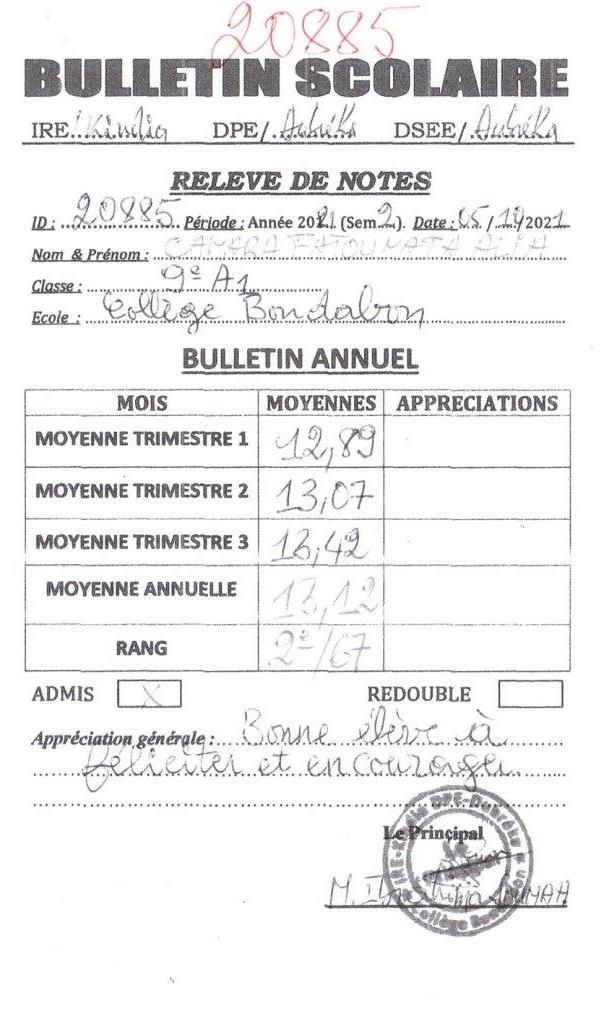 20885
BULLETIN SCOLAIRE
IRE..Kindia DPE/.Dubréka DSEE/.Dubréka
RELEVE DE NOTES
ID : 20885. Période : Année 2021. (Sem.2). Date : 05 / 2021
Nom & Prénom : CAMARA FATOUMATA ALIA
Classe : 9e A1
Ecole : Collège Bondabon
BULLETIN ANNUEL
MOIS MOYENNES APPRECIATIONS
MOYENNE TRIMESTRE 1 12,89
MOYENNE TRIMESTRE 2 13,07
MOYENNE TRIMESTRE 3 13,42
MOYENNE ANNUELLE 13,12
RANG 2e/67
ADMIS X REDOUBLE
Appréciation générale : Bonne élève à
féliciter et encourager
IRE-Kindia DPE-Dubréka
Le Principal
M. SOUMAH
Collège